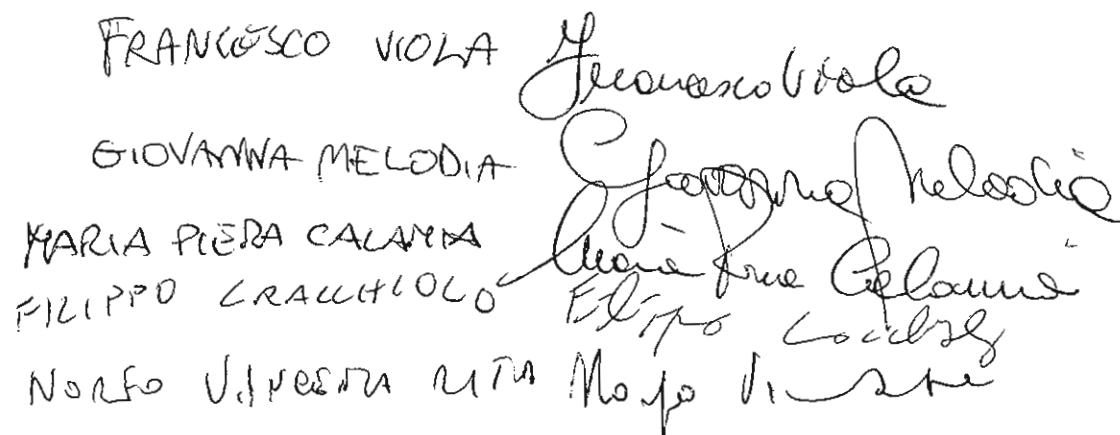 FRANCESCO VIOLA Francesco Viola
GIOVANNA MELODIA Giovanna Melodia
MARIA PIERA CALAMIA Maria Piera Calamia
FILIPPO CRACCHIOLO Filippo
NORFO VINCENZA RITA Norfo